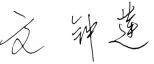 文钟莲